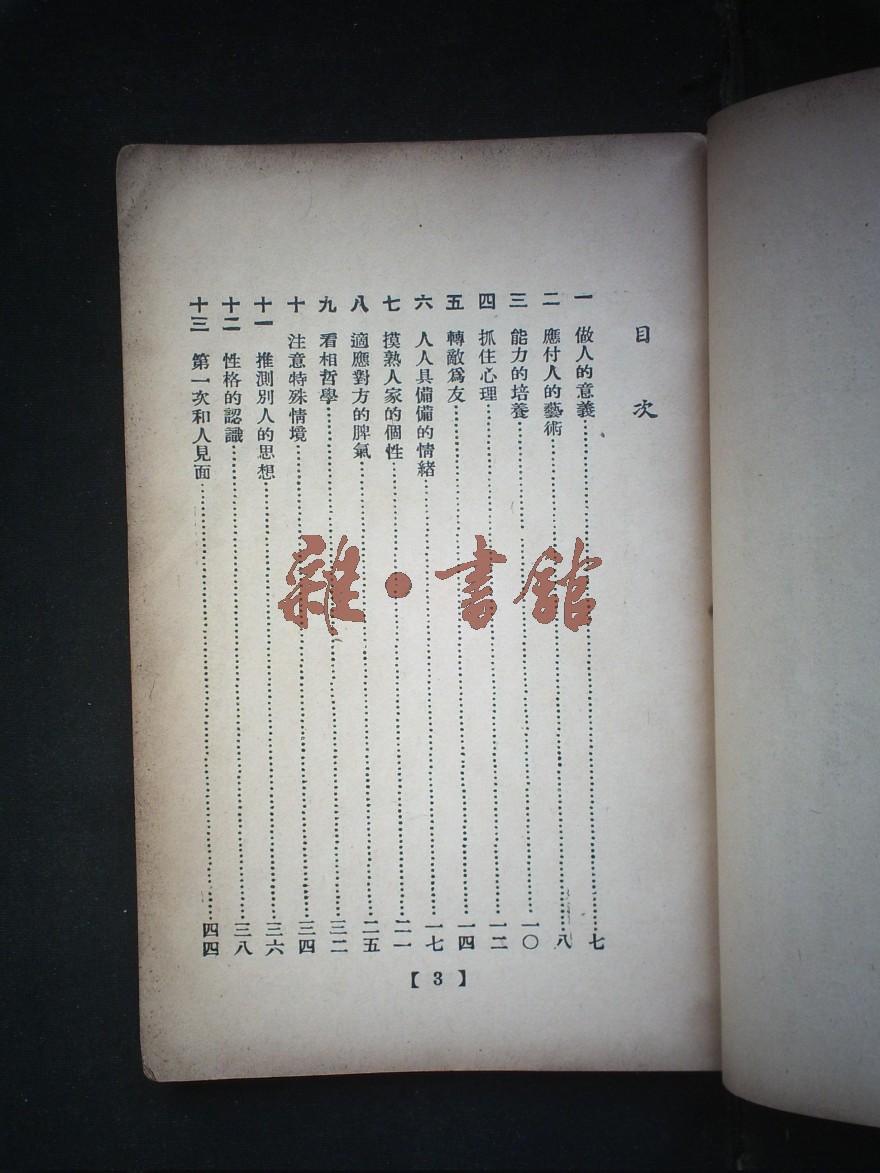 目次
一 做人的意義……七
二 應付人的藝術……八
三 能力的培養……一〇
四 抓住心理……一二
五 轉敵爲友……一四
六 人人具備備的情緒……一七
七 摸熟人家的個性……二一
八 適應對方的脾氣……二五
九 看相哲學……三二
十 注意特殊情境……三四
十一 推測別人的思想……三六
十二 性格的認識……三八
十三 第一次和人見面……四四
【3】
雜·書館